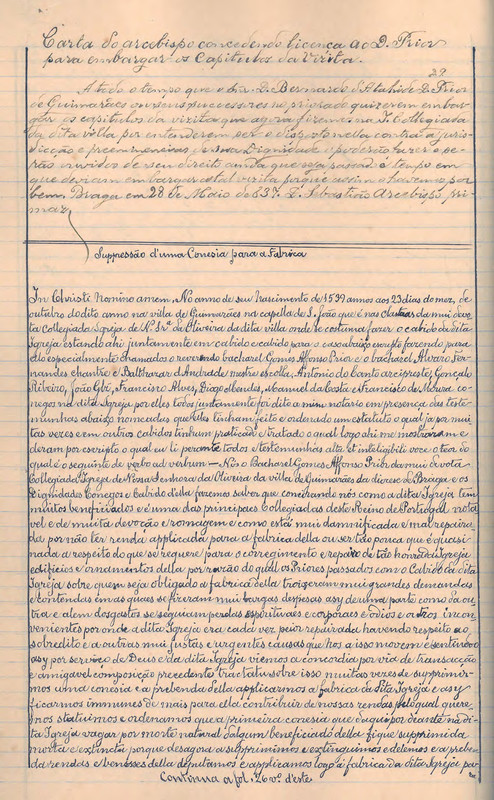 Carta do arcebispo concedendo licença ao D. Prior
para embargar os Capitulos da Visita.
29
A todo o tempo que o sñr. D. Bernardo d'Atahide D. Prior
de Guimarães ou seus successores no priorado quizerem embar-
gar os capitulos da vizita que agora fizemos na I. Collegiada
da dita villa por entenderem ser e dispostonella contra a juris-
dicção e preeminencias dessua Dignidade o poderão fazer e se-
rão ouvidos de seu direito ainda que seja passado o tempo em
que deviam embargar a tal vizita porque assim o havemos por
bem. Braga em 28 de Maio de 637. D. Sebastião Arcebispo pri-
maz
Suppressão d'uma Conesia para a Fabrica
In Christi Nomine amem. No anno de seu Nascimento de 1539 annos aos 23 dias do mez, de
outubro do dito anno na villa de Guimarães na capella de S. João que é nas claustras da mui devo-
ta Collegiada Igreja de N. Srª de Oliveira da dita villa onde se costuma fazer o cabido da dita
Igreja estando ahi juntamente em cabido e cabido para o caso abaixo escripto fazendo para
ello especialmente chamados o reverendo bacharel Gomes Affonso Prior e o bacharel Alvaro Fer-
nandes chantre e Balthazar d'Andrade mestre escolla, Antonio do Canto arcipreste, Gonçalo
Ribeiro, João Glz, Francisco Alves, Diogo Mendes, Manuel da Costa e Francisco de Moura co-
negos na dita Igreja por elles todos juntamente foi dito a mim notario em presença das teste-
munhas abaixo nomeadas que elles tinham feito e ordenado um estatuto o qual ja por mui
tas vezes e em outros cabidos tinham praticado e tratado o qual logo ahi me mostraram e
deram por escripto o qual eu li perante todos e testemunhas alta et inteligibili voce o teor do
qual é o seguinte de verbo ad verbum — Nós o Bacharel Gomes Affonso Prior da mui devota
Collegiada Igreja de Nossa Senhora da Oliveira da villa de Guimarães da diocese de Braga e os
Dignidades Conegos e Cabido della fazemos saber que considrando nós como a dita Igreja tem
muitos beneficiados e é uma das principaes Collegiadas deste Reino de Portugal nota
vel e de muita devoção e romagem e como está mui damnificada e mal repaira
da por não ter renda applicada para a fabrica della ou ser tão pouca que é quasi
nada a respeito do que se requere para o corregimento e repairo de tão honrada Igreja
edificios e ornamentos della por razão do qual os Priores passados com o Cabido da dita
Igreja sobre quem seja obligado a fabrica della trouxeram mui grandes demandas
e contendas em as quaes se fizeram mui largas despesas asy de uma parte como da ou
tra e alem dos gastos se seguiam perdas espirituaes e corporaes e odios e outros incon
venientes por onde a dita Igreja era cada vez peior repairada havendo respeito ao
sobredito e a outras mui justas e urgentes causas que nos a isso movem e sentindo o
asy por serviço de Deus e da dita Igreja viemos a concordia por via de transacção
e amigavel composição precedente tractatu sobre isso muitas vezes de supprimir-
mos uma conesia e a prebenda della applicarmos a fabrica da dita Igreja e asy
ficarmos immunes de mais para ella contribuir de nossas rendas pelo qual quere-
mos statuimos e ordenamos que a primeira conesia que daqui por diante na di-
ta Igreja vagar por morte natural d'algum beneficiado della fique supprimida
morta e extincta porque desagora a supprimimos e extinguimos e delemos e a preben
da rendas e benesses della deputamos e applicamos logo á fabrica da dita Igreja pa-
Continua a fol. 20 vº d'este.